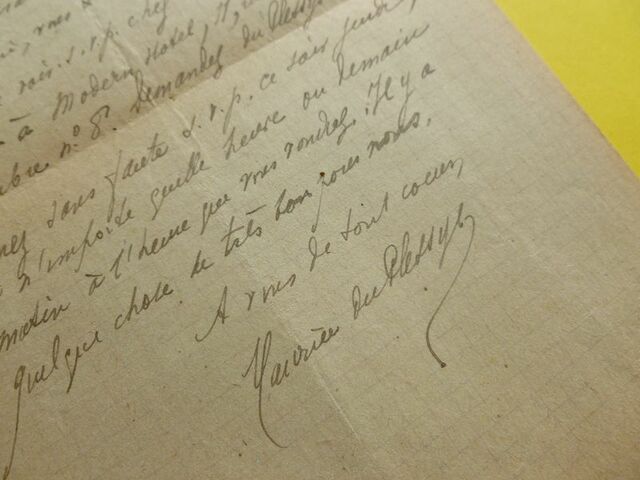 vous
voir s.v.p. chez
à Modern Hôtel, 11,
n° 8. Demandez du Plessys
sans faute s.v.p. ce soir jeudi,
n'importe quelle heure ou demain
matin à l'heure que vous voudrez. Il y a
quelque chose de très bon pour nous.
A vous de tout cœur,
Maurice du Plessys